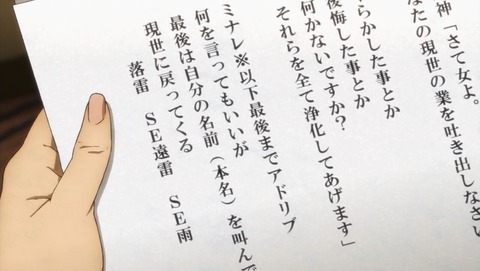 神「さて女よ。
なたの現世の業を吐き出しなさい
らかした事とか
後悔した事とか
何かないですか?
それらを全て浄化してあげます」
ミナレ※以下最後までアドリブ
何を言ってもいいが
最後は自分の名前(本名)を叫んで
現世に戻ってくる
落雷 SE遠雷 SE雨